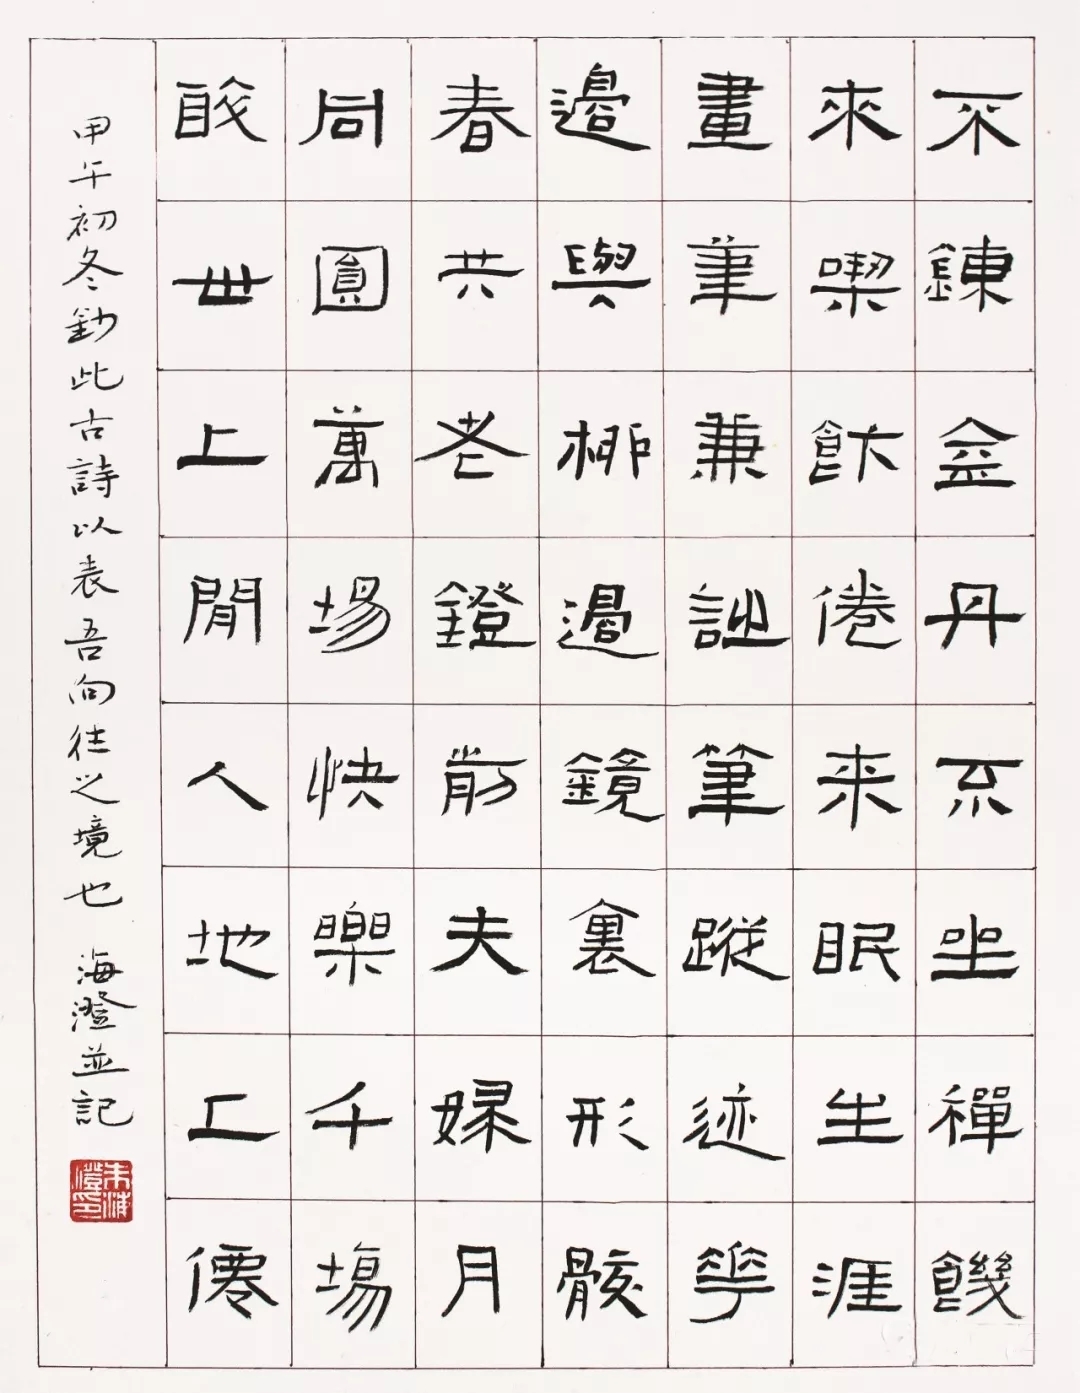 不鍊金丹不坐禪饑
來喫飯倦來眠生涯
畫筆兼詩筆蹤迹華
邊與柳邊鏡裏形骸
春共老鐙前夫婦月
同圓萬場快樂千場
醉世上閒人地上僊
甲午初冬鈔此古詩以表吾向往之境也 海澄並記
朱海澄印